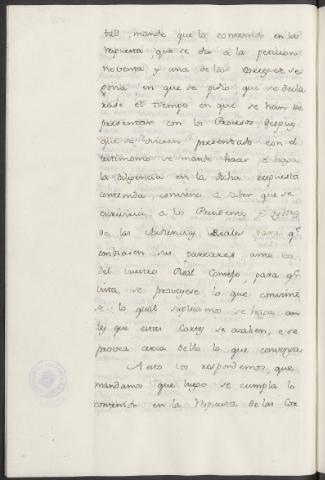 tad, mande que lo contenido en la
respuesta, que se dio a la peticion
noventa y una de las
en que se pidio que se decla
rase el tiempo en que se han de
presentar con los Procesos, despues
que se uviesen presentado con el
testimonio se mande hacer e haga
la diligencia en la dicha respuesta
contenida, conviene a saber que se
escriviria a los Presidentes, e
de las Audiencias Reales para qe
embiasen sus pareceres ante los
del vuestro Real Consejo, para qe
vista, se proveyese lo que convinie
se lo qual suplicamos se haga an
tes que estas Cortes se acaben, e se
provea cerca dello lo que convenga
A esto vos respondemos, que
mandamos que luego se cumpla lo
contenido en la Respuesta de las Cor